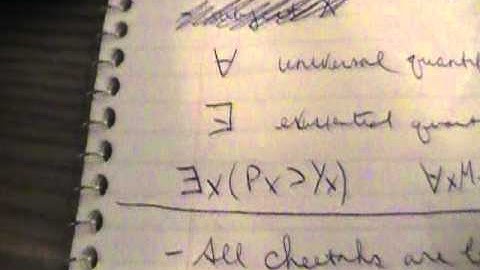 ∀ universal quantif
∃ existential quant
∃x(Px⊃Yx) ∀xM
- All cheetahs are